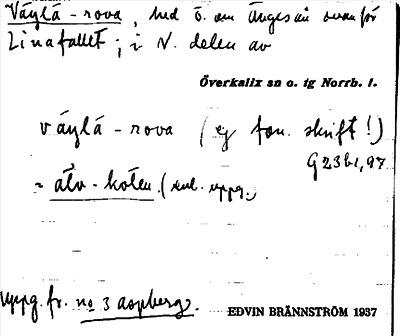 Väylä - rova, hed ö. om Ängesån ovanför
Linafallet; i N. delen av
Överkalix sn o. tg Norrb. l.
väylä - rova (ej fon. skrift!)
G23b1,97
= älv - koten (enl. uppg.)
uppg. fr. no 3 aspberg.
EDVIN BRÄNNSTRÖM 1937